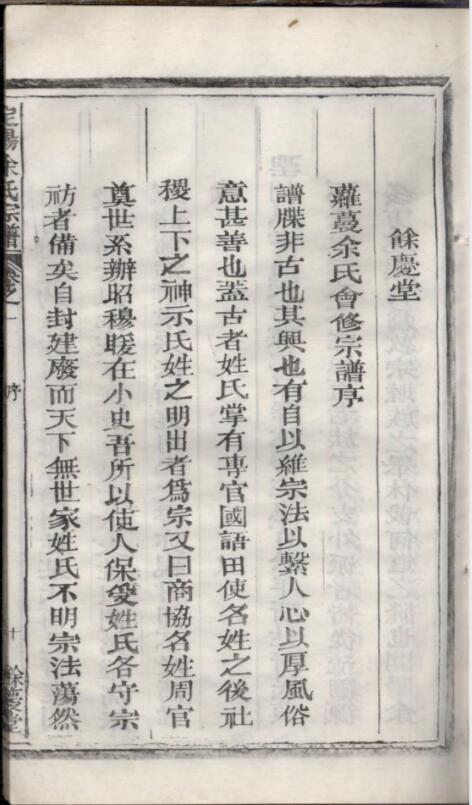 餘慶堂
蘿蔓余氏會修宗譜序
譜牒非古也其興也有自以維宗法以繫人心以厚風俗
意甚善也蓋古者姓氏掌有專官國語田使名姓之後社
稷上下之神示氏姓之明出者爲宗又曰商協名姓周官
奠世系辦昭穆暖在小史吾所以使人保受姓氏各守宗
祊者備矣自封建廢而天下無世家姓氏不明宗法蕩然
定陽余氏宗譜 卷之一 序 十 餘慶堂